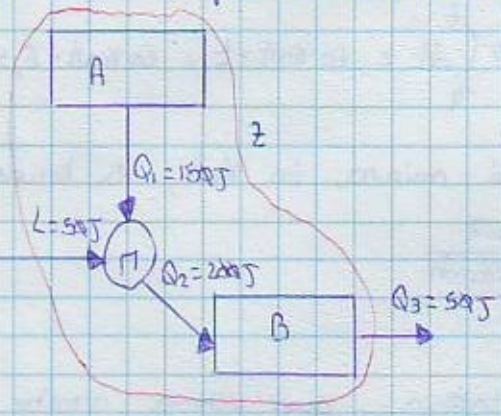 A
Z
Q₁=150J
L=50J
M
Q₂=200J
Q₃=50J
B